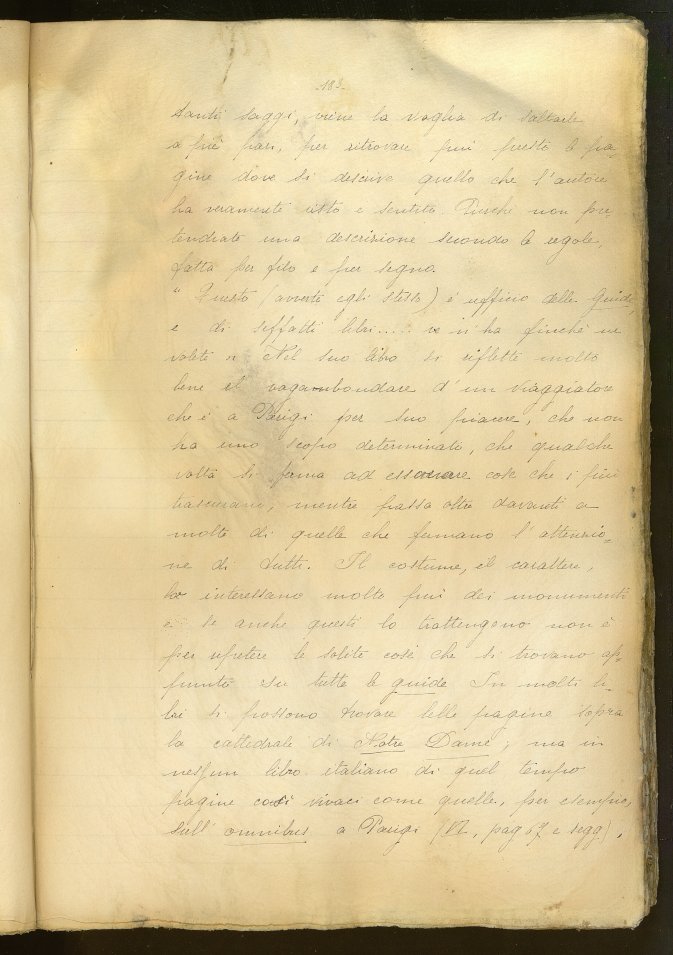 -183-
tanti saggi, viene la voglia di saltarle
a piè pari, per ritrovare più presto le pa-
gine dove si descrive quello che l'autore
ha veramente visto e sentito. Purchè non pre-
tendiate una descrizione secondo le regole,
fatta per filo e per segno.
" Questo (avverte egli stesso) è ufficio delle Guide,
e di siffatti libri..... ve n'ha finchè ne
volete " Nel suo libro si riflette molto
bene il vagambondare d'un viaggiatore
che è a Parigi per suo piacere, che non
ha uno scopo determinato, che qualche
volta si ferma ad esaminare cose che i più
trascurano, mentre passa oltre davanti a
molte di quelle che fermano l'attenzio-
ne di tutti. Il costume, il carattere,
lo interessano molto più dei monumenti
e se anche questi lo trattengono non è
per ripetere le solite cose che si trovano ap-
punto su tutte le guide In molti li-
bri si possono trovare belle pagine sopra
la cattedrale di Notre Dame, ma in
nessun libro italiano di quel tempo
pagine così vivaci come quelle, per esempio,
sull' omnibus a Parigi (VI, pag 67 e segg).